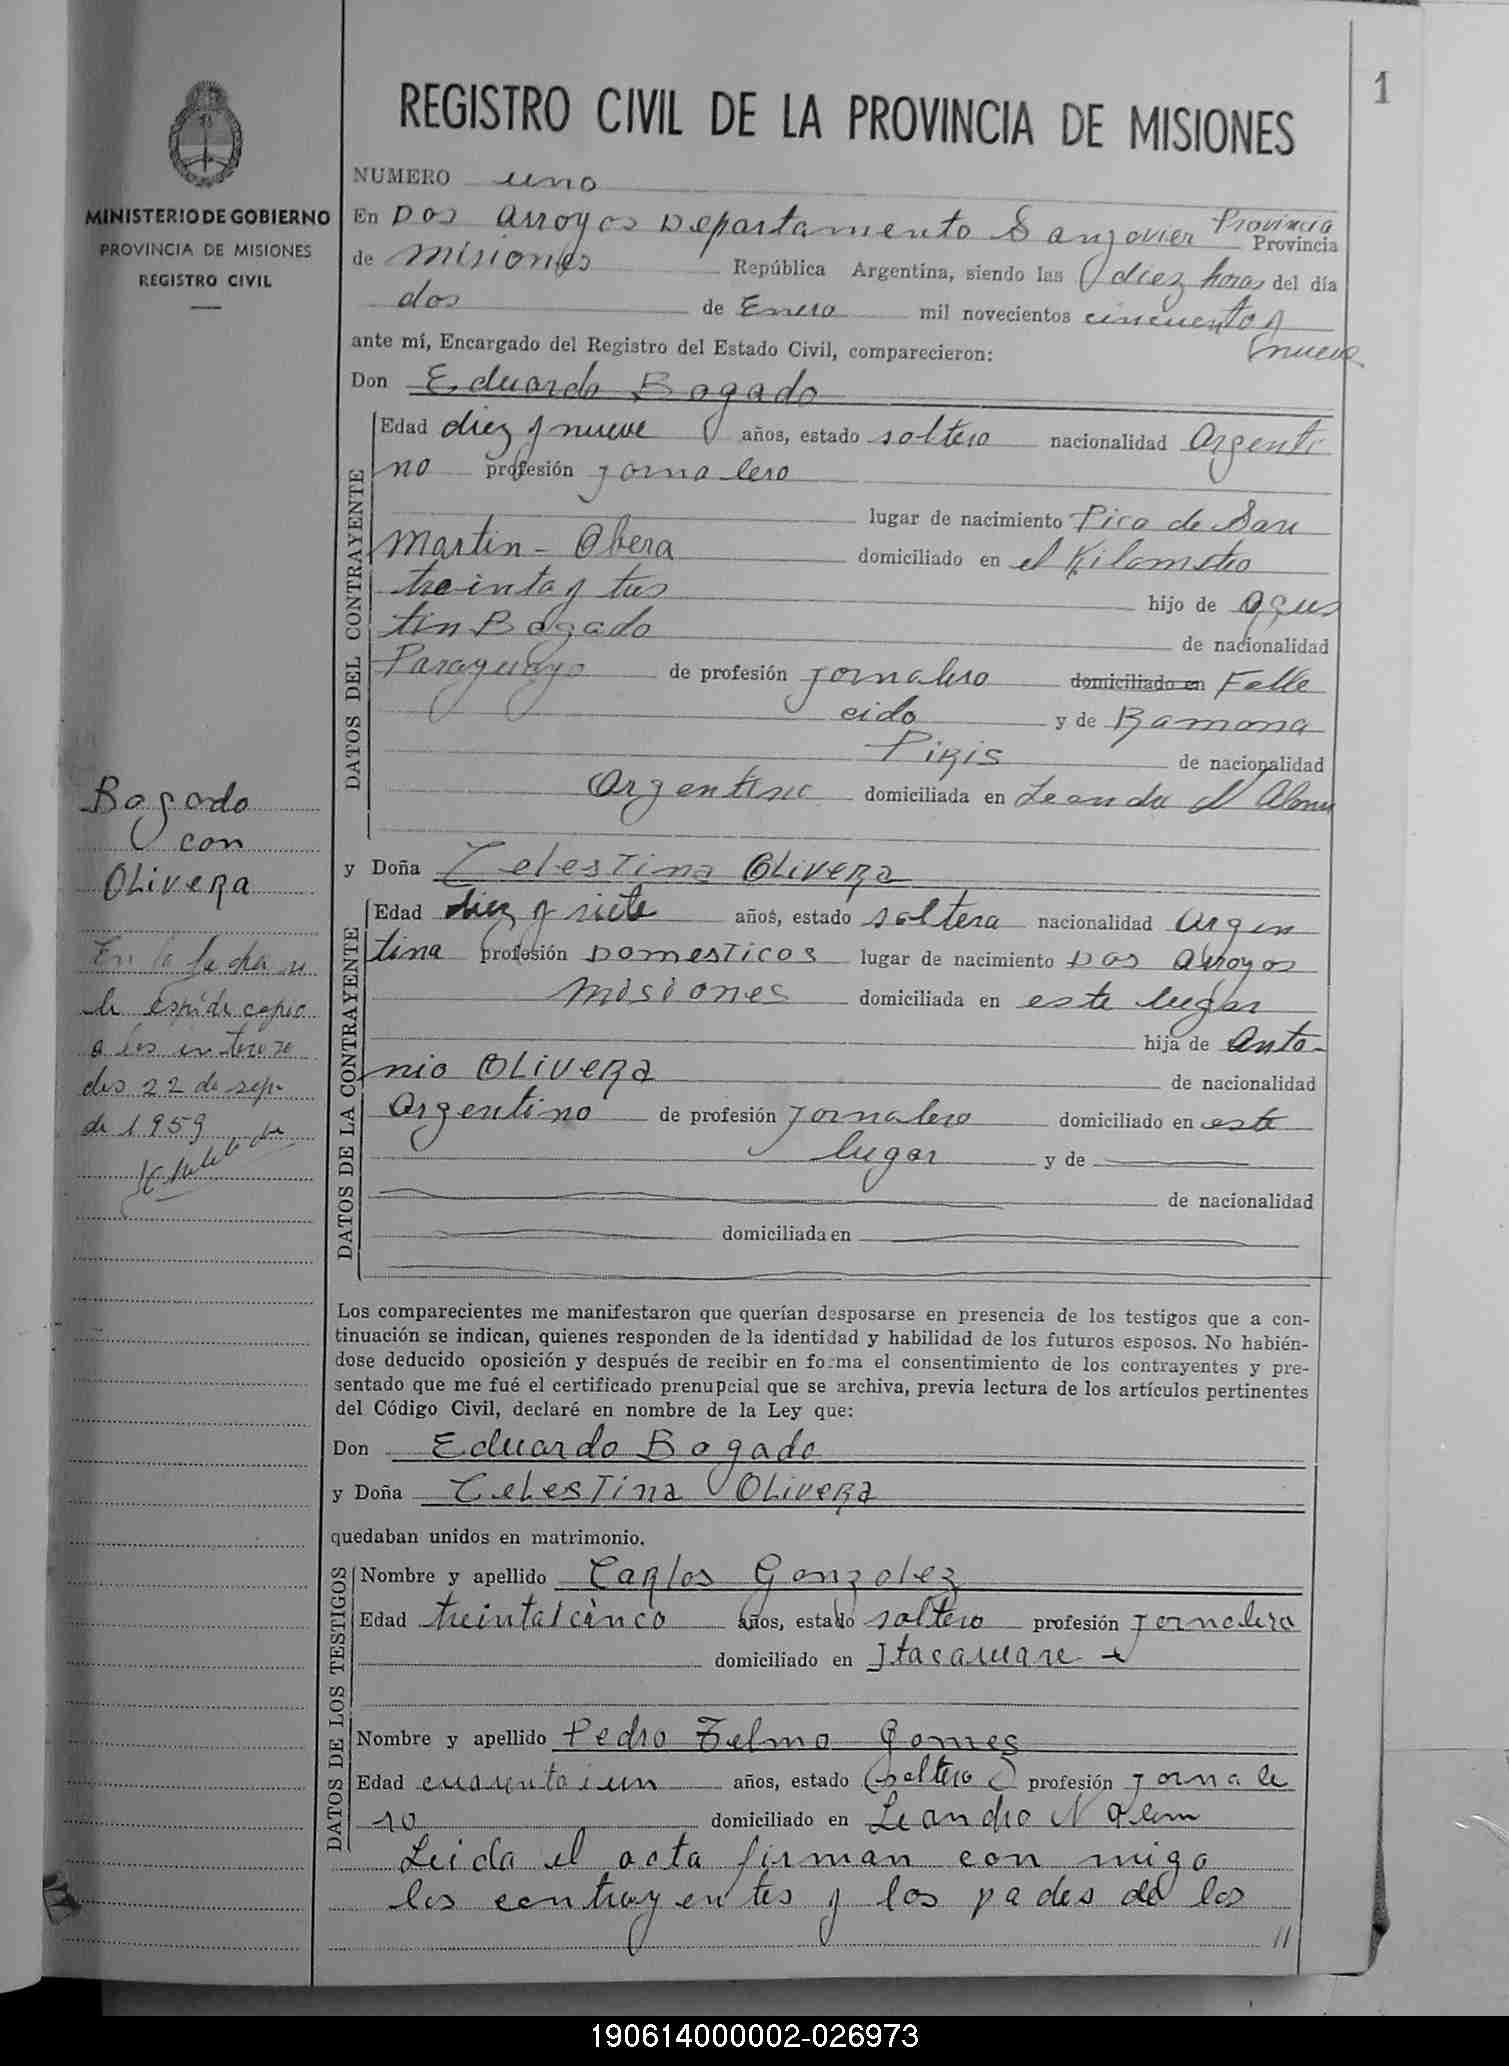 1
REGISTRO CIVIL DE LA PROVINCIA DE MISIONES
MINISTERIO DE GOBIERNO
PROVINCIA DE MISIONES
REGISTRO CIVIL
NUMERO uno
En Dos Arroyos Departamento Sanjavier Provincia Provincia
de Misiones República Argentina, siendo las diez horas del día
dos de Enero mil novecientos cincuenta y
nueve
ante mí, Encargado del Registro del Estado Civil, comparecieron:
Don Eduardo Bogado
DATOS DEL CONTRAYENTE
Edad diez y nueve años, estado soltero nacionalidad Argenti
no profesión jornalero
lugar de nacimiento Pica de San
Martin - Obera domiciliado en el Kilometro
treinta y tres hijo de Agus
tin Bogado de nacionalidad
Paraguayo de profesión jornalero domiciliado en Falle
cido y de Ramona
Piris de nacionalidad
Argentina domiciliada en Leandro N Alem
Bogado
con
OLivera
y Doña Celestina OLivera
DATOS DE LA CONTRAYENTE
Edad diez y siete años, estado soltera nacionalidad Argen
tina profesión Domesticos lugar de nacimiento Dos Arroyos
Misiones domiciliada en este lugar
hija de Anto-
nio OLivera de nacionalidad
Argentino de profesión jornalero domiciliado en este
lugar y de
de nacionalidad
domiciliada en
En la fecha se
le espide copia
a los interesa
dos 22 de sep.
de 1959
Los comparecientes me manifestaron que querían desposarse en presencia de los testigos que a con-
tinuación se indican, quienes responden de la identidad y habilidad de los futuros esposos. No habién-
dose deducido oposición y después de recibir en forma el consentimiento de los contrayentes y pre-
sentado que me fué el certificado prenupcial que se archiva, previa lectura de los artículos pertinentes
del Código Civil, declaré en nombre de la Ley que:
Don Eduardo Bogado
y Doña Celestina OLivera
quedaban unidos en matrimonio.
DATOS DE LOS TESTIGOS
Nombre y apellido Carlos Gonzalez
Edad treintaicinco años, estado soltero profesión jornalero
domiciliado en Itacaruare
Nombre y apellido Pedro Telmo Gomes
Edad cuarenta i un años, estado (soltero) profesión jornale
ro domiciliado en Leandro N Alem
Leida el acta firman con migo
los contrayentes y los pades de los
//
190614000002-026973